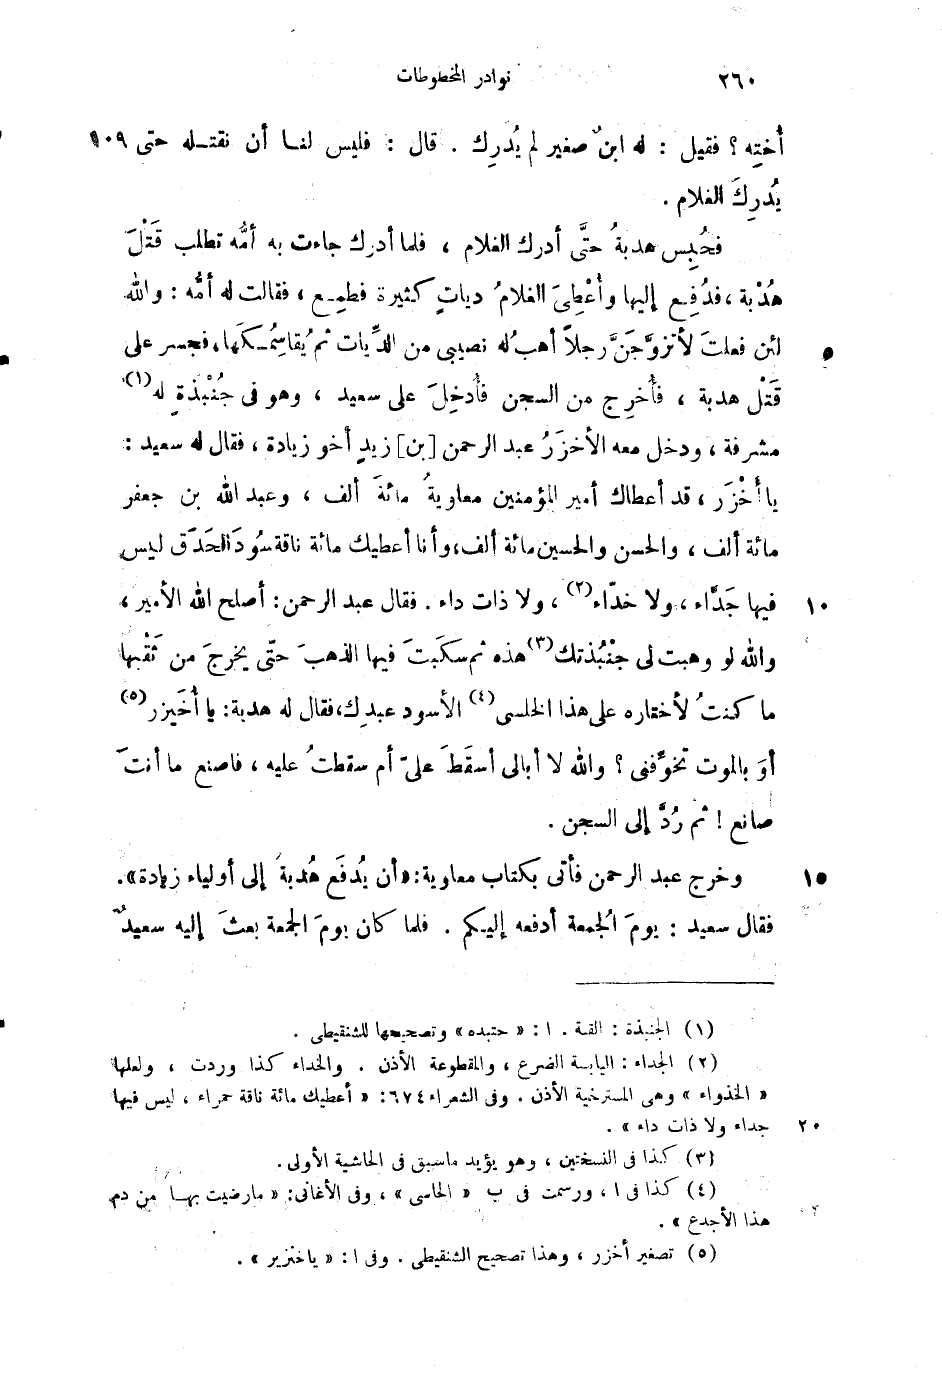 ٢٦٠ نوادر المخطوطات
أُختِه ؟ فقيل : له ابنٌ صغير لم يُدرِك . قال : فليس لنا أن نقتله حتى ١٠٩
يُدرِكَ الغلام .
فحُبِس هدبةُ حتَّى أدرك الغلام ، فلما أدرك جاءت به أمُّه تطلب قَتْلَ
هُدْبة ، فدُفِع إليها وأُعْطِىَ الغلامُ دياتٍ كثيرة فطمِع ، فقالت له أمُّه : والله
لئن فعلتَ لأتزوَّجَنَّ رجلاً أهبُ له نصيبى من الدِّيات ثم يُقاسِمُكَها ، فجسر على ٥
قَتْل هدبة ، فأُخرِج من السجن فأُدخِلَ على سعيد ، وهو فى جُنْبُذةٍ له(١)
مشرفة ، ودخل معه الأخزَرُ عبد الرحمن [بن] زيدٍ أخو زيادة ، فقال له سعيد :
يا أَخْزَر ، قد أعطاك أمير المؤمنين معاويةُ مائةَ ألف ، وعبد الله بن جعفر
مائة ألف ، والحسن والحسين مائة ألف ، وأنا أعطيك مائة ناقة سُودَ الحَدَق ليس
فيها جَدَّاء ، ولا خدّاء(٢) ، ولا ذات داء . فقال عبد الرحمن : أصلح الله الأمير ، ١٠
والله لو وهبت لى جنْبُذتك(٣) هذه ثم سكَبتَ فيها الذهبَ حتّى يخرجَ من ثَقْبها
ما كنتُ لأختاره على هذا الخلسى(٤) الأسود عبدِك ، فقال له هدبة : يا أُخَيزر(٥)
أوَ بالموت تخوِّفنى ؟ والله لا أبالى أسقَطَ علىّ أم سقطتُ عليه ، فاصنع ما أنتَ
صانع ! ثم رُدَّ إلى السجن .
وخرج عبد الرحمن فأتى بكتاب معاوية : «أن يُدفَع هُدبةُ إلى أولياء زيادة» . ١٥
فقال سعيد : يومَ الجُمعة أدفعه إليكم . فلما كان يومَ الجمعة بعثَ إليه سعيدٌ
(١) الجنبذة : القبة . ا : « حتبده » وتصحيحها للشنقيطى .
(٢) الجداء : اليابسة الضرع ، والمقطوعة الأذن . والخداء كذا وردت ، ولعلها
« الخذواء » وهى المسترخية الأذن . وفى الشعراء ٦٧٤ : « أعطيك مائة ناقة حمراء ، ليس فيها
جداء ولا ذات داء » . ٢٠
(٣) كذا فى النسختين ، وهو يؤيد ماسبق فى الحاشية الأولى .
(٤) كذا فى ا ، ورسمت فى ب « الحاسى » ، وفى الأغانى : « مارضيت بها من دم
هذا الأجدع » .
(٥) تصغير أخزر ، وهذا تصحيح الشنقيطى . وفى ا : « ياخنزير » .